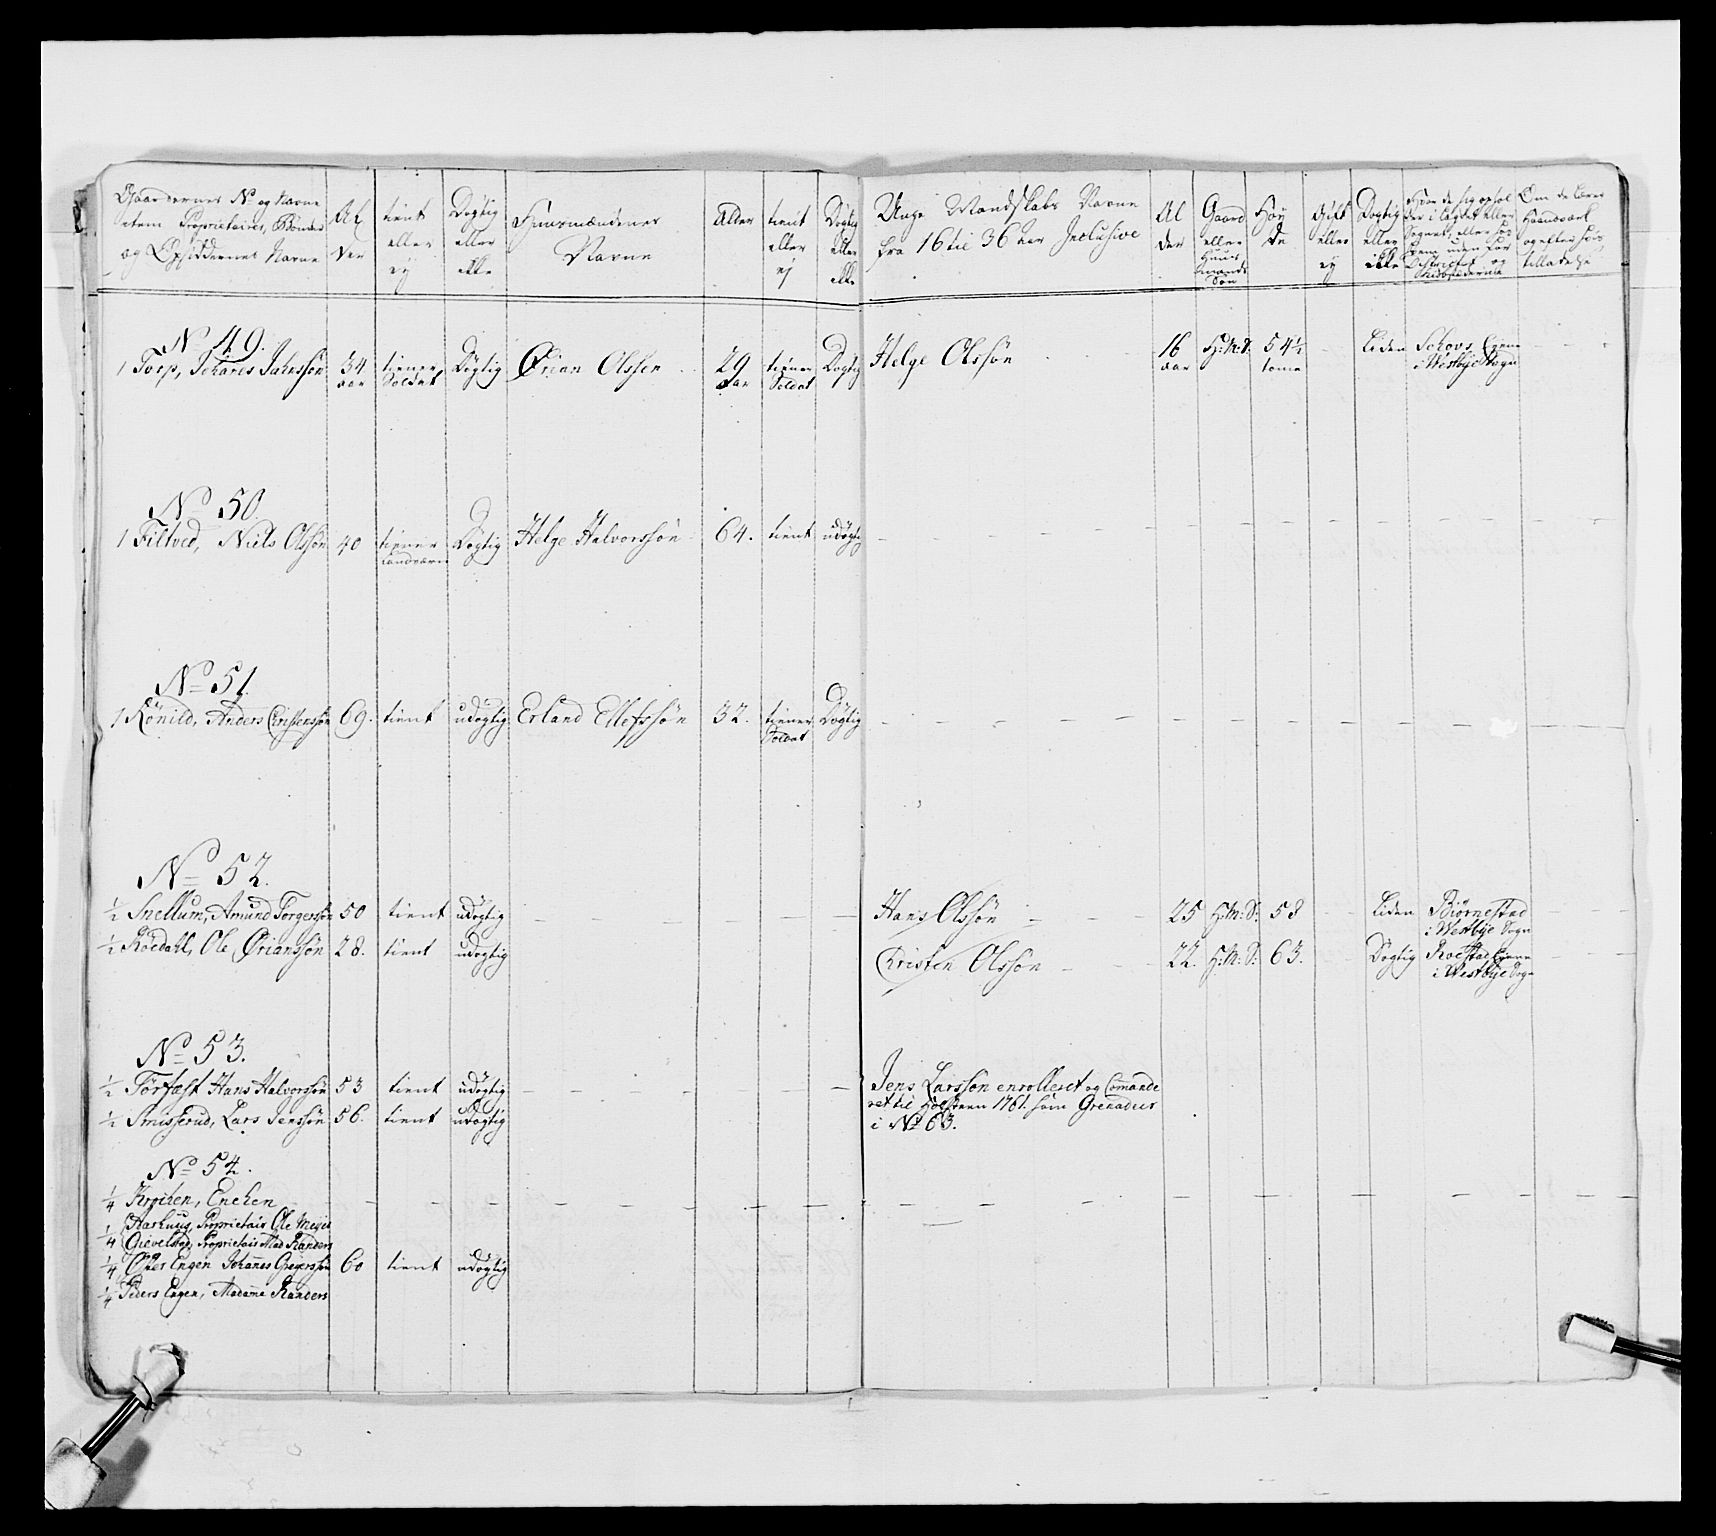 Gaardernes No og Navne
item Proprietaires, Bönder
og Opsiddernes Navne
Al
der
tient
eller
ej
Dögtig
eller
ikke
Huusmændenes
Navne
Alder
tient
eller
ej
Dögtig
eller
ikke
Unge Mandskabs Navne
fra 16 til 36 aar Inclusive
Al
der
Gaard
eller
Huus
mands
Sön
Höy
de
Gift
eller
ej
Dögtig
eller
ikke
Om de lært
Haandværk
og efter hös
tilladelse
No 49.
1 Torp, Johanes Jahnsön 34 aar tiener Soldat Dögtig Örian Olssen 29 aar tiener Soldat Dögtig Helge Olssön 16 aar H:M:S: 54½ tome Liden Schovs Eyene
i Westbye Sogn
No 50.
1 Filtved, Niels Olssön 40 tiener Landværn Dögtig Helge Halvorssön 64. tient udögtig
No 51.
1 Rönild, Anders Christenssön 69. tient udögtig Erland Ellefssön 32. tiener Soldat Dögtig
No 52.
½ Snellum, Amund Torgerssön 50 tient udögtig Hans Olssön 25 H:M:S: 58 Liden Biörnestad
i Westbye Sogn
½ Röedahl, Ole Örianssön 28. tient udögtig Christen Olssön 22. H:M:S: 63. Dögtig Roestad Eyene
i Westbye Sogn
No 53.
½ Törfæst Hans Halvorssön 53 tient udögtig Jens Larssön enrolleret og Comande
ret til Holsteen 1761. som Grenadeer
i No 63.
½ Smisserud, Lars Jenssön 56. tient udögtig
No 54.
¼ Krochen, Enchen
¼ Aarhuus, Proprietair Ole Meyer
¼ Gievelstad, Proprietair Mad Randers
¼ Öster Engen Johannes Gregerssön 60 tient udögtig
¼ Peders Engen, Madame Randers